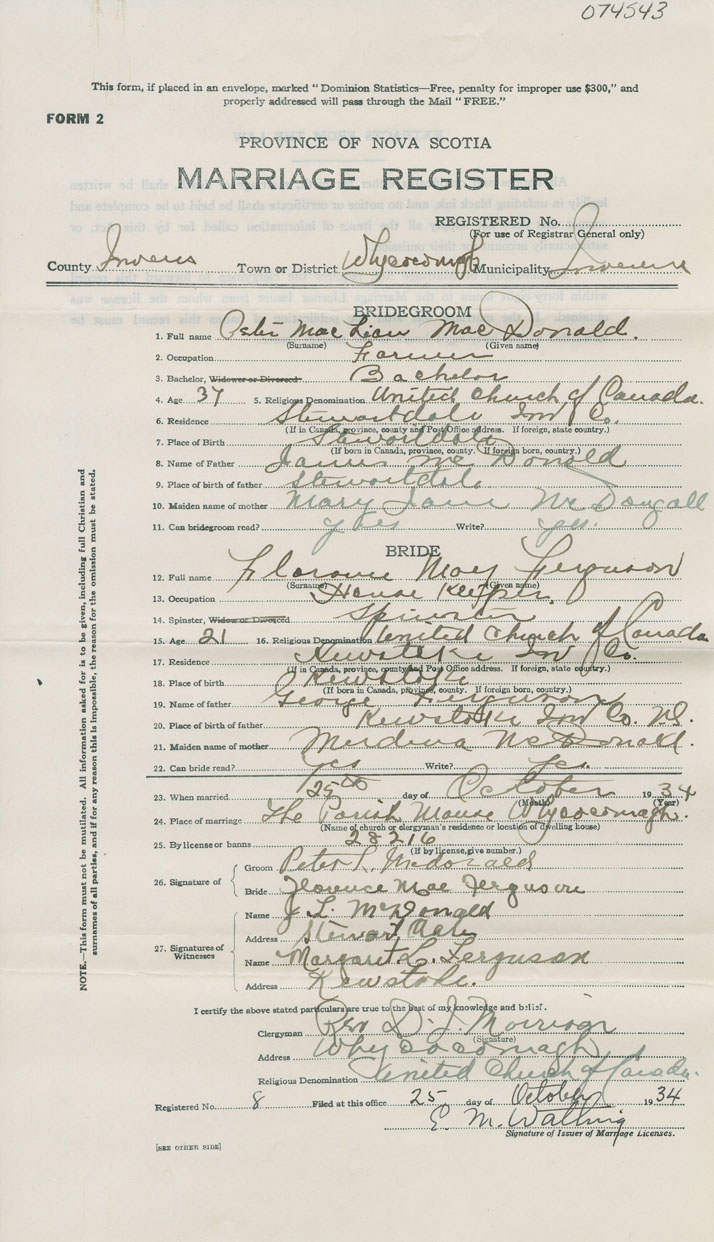 074543
This form, if placed in an envelope, marked "Dominion Statistics—Free, penalty for improper use $300," and
properly addressed will pass through the Mail "FREE."
FORM 2
PROVINCE OF NOVA SCOTIA
MARRIAGE REGISTER
REGISTERED No.
(For use of Registrar General only)
County Inverness Town or District Whycocomagh Municipality Inverness
BRIDEGROOM
1. Full name Peter MacLean MacDonald.
(Surname) (Given name)
2. Occupation Farmer
3. Bachelor, Widower or Divorced Bachelor
4. Age 37 5. Religious Denomination United Church of Canada.
6. Residence Stewartdale Inv Co.
(If in Canada, province, county and Post Office address. If foreign, state country.)
7. Place of Birth Stewartdale
(If born in Canada, province, county. If foreign born, country.)
8. Name of Father James McDonald
9. Place of birth of father Stewartdale
10. Maiden name of mother Mary Jane McDougall
11. Can bridegroom read? yes Write? yes.
BRIDE
12. Full name Florence May Ferguson
(Surname) (Given name)
13. Occupation House Keeper.
14. Spinster, Widow or Divorced Spinster
15. Age 21 16. Religious Denomination United Church of Canada
17. Residence Kewstoke Inv Co.
(If in Canada, province, county and Post Office address. If foreign, state country.)
18. Place of birth Kewstoke
(If born in Canada, province, county. If foreign born, country.)
19. Name of father George Ferguson
20. Place of birth of father Kewstoke Inv Co. NS.
21. Maiden name of mother McDonald.
22. Can bride read? yes Write? yes.
23. When married 25th day of October 1934
(Month) (Year)
24. Place of marriage The Parish Manse Whycocomagh.
(Name of church or clergyman's residence or location of dwelling house)
25. By license or banns 28216
(If by license, give number.)
26. Signature of
Groom Peter L. Mcdonald
Bride Florence Mae Ferguson
27. Signatures of Witnesses
Name J L. McDonald
Address Stewartdale
Name Margaret L. Ferguson
Address Kewstoke.
I certify the above stated particulars are true to the best of my knowledge and belief.
Clergyman Rev D. J. Morrison
(Signature)
Address Whycocomagh
Religious Denomination United Church of Canada.
Registered No. 8 Filed at this office 25 day of October 1934
E. M.
Signature of Issuer of Marriage Licenses.
[SEE OTHER SIDE]
NOTE.—This form must not be mutilated. All information asked for is to be given, including full Christian and
surnames of all parties, and if for any reason this is impossible, the reason for the omission must be stated.